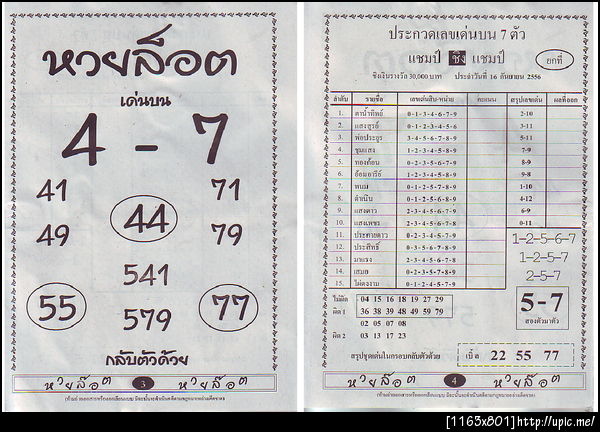 หวยล็อต
เด่นบน
4 - 7
41 71
44
49 79
541
55 77
579
กลับตัวด้วย
หวยล๊อต 3 หวยล๊อต
ประกวดเลขเด่นบน 7 ตัว
แชมป์ ชิง แชมป์
ยกที่
ชิงเงินรางวัล 30,000 บาท ประจำวันที่ 16 กันยายน 2556
ลำดับ รายชื่อ เลขเด่นสิบ-หน่วย คะแนน สรุปเลขเด่น ผลที่ออก
1. ตาน้ำทิพย์ 0-1-3-4-6-7-9 2-10
2. แสงสูรย์ 0-1-2-3-4-5-6 3-11
3. พ่อประภูร 2-3-4-5-6-7-8 5-11
4. ชุมแสง 1-2-3-4-5-8-9 7-9
5. ทองก้อน 0-2-3-4-5-6-7 8-9
6. อ้อมอารีย์ 1-2-3-4-5-8-9 9-8
7. ทนม 0-1-2-5-7-8-9 1-10
8. ดำเนิน 0-1-2-4-5-7-8 4-12
9. แสงดาว 2-3-4-5-6-8-9 6-9
10. แสงเพชร 2-3-4-5-7-8-9 0-11
11. ประกายดาว 2-3-4-5-6-7-8 1-2-5-6-7
12. ประสิทธิ์ 0-3-5-6-7-8-9
13. มาแรง 0-2-3-4-5-6-8 1-2-5-7
14. เสมอ 0-1-2-4-5-8-9 2-5-7
15. ไผ่ตงงาม 0-1-2-4-5-7-9
ไม่ผิด 04 15 16 18 19 27 29
ผิด 1 36 38 39 48 49 59 79
02 05 07 08
ผิด 2 03 12 13 17 23
5-7
สองตัวมาตัว
สรุปชุดเด่นในกรอบกลับตัวด้วย เบิ้ล 22 55 77
หวยล๊อต 4 หวยล๊อต
[1163x801]http://upic.me/